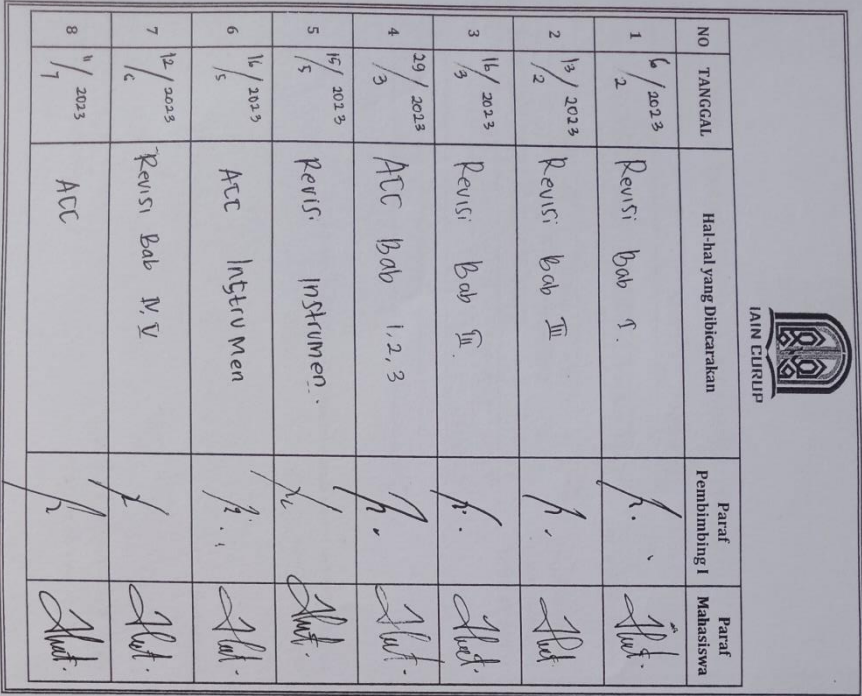 IAIN CURUP
NO TANGGAL Hal-hal yang Dibicarakan Paraf Pembimbing I Paraf Mahasiswa
1 6/2 2023 Revisi Bab I.
2 13/2 2023 Revisi Bab III
3 16/3 2023 Revisi Bab III.
4 29/3 2023 ACC Bab 1,2,3
5 15/5 2023 Revisi Instrumen.
6 16/5 2023 ACC Instrumen
7 12/6 2023 Revisi Bab IV, V
8 11/7 2023 ACC